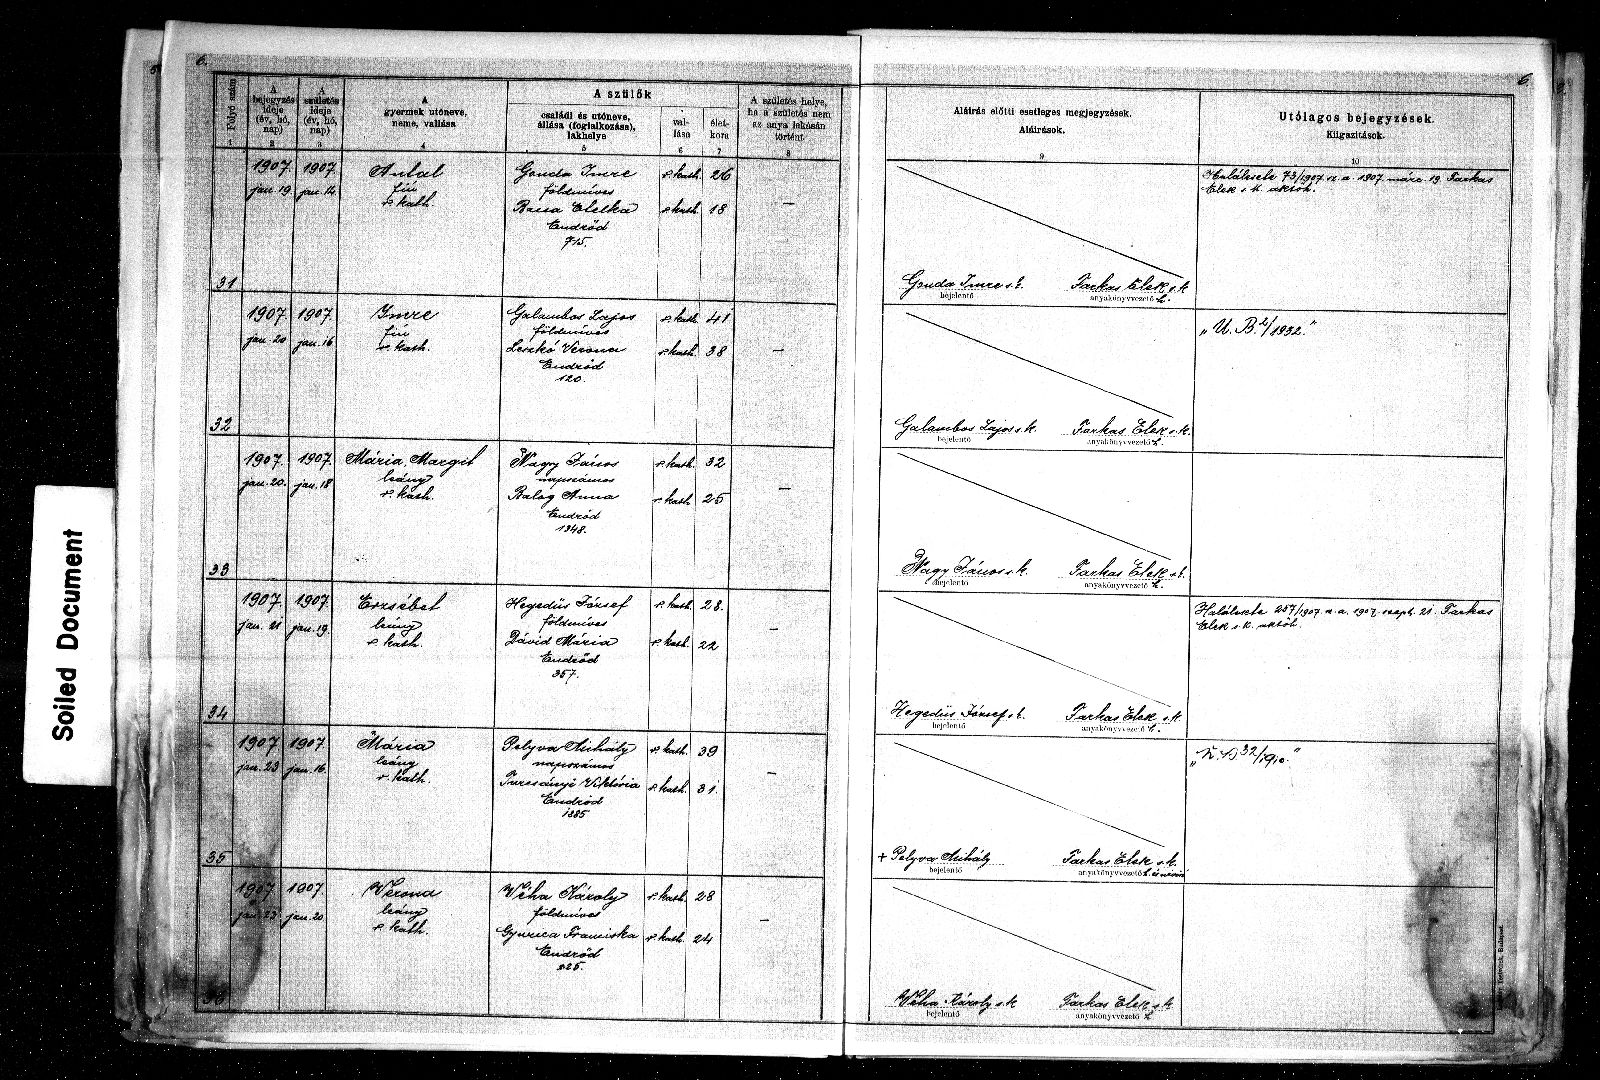 Soiled Document
6.
6.
Folyó szám
A bejegyzés ideje (év, hó, nap)
A születés ideje (év, hó, nap)
A gyermek utóneve, neme, vallása
A szülők
családi és utóneve, állása (foglalkozása), lakhelye
vallása
életkora
A születés helye, ha a születés nem az anya lakásán történt
Aláírás előtti esetleges megjegyzések.
Aláírások.
Utólagos bejegyzések.
Kiigazítások.
1 2 3 4 5 6 7 8 9 10
31
1907. jan. 19.
1907. jan. 14.
Antal
fiú
r. kath.
Gonda Imre r. kath. 26
földmíves
Etelka r. kath. 18
Endrőd
715.
—
Gonda Imre s. k.
bejelentő
Farkas Elek s. k.
anyakönyvvezető h.
Halálesete 73/1907. sz. a. 1907 márc. 19. Farkas
Elek s. k. aktóh.
32
1907. jan. 20
1907. jan. 16
Imre
fiú
r. kath.
Galambos Lajos r. kath. 41
földmíves
Leszkó Verona r. kath. 38
Endrőd
120.
—
Galambos Lajos s. k.
bejelentő
Farkas Elek s. k.
anyakönyvvezető h.
„U. B. /1932."
33
1907. jan. 20.
1907. jan. 18
Mária, Margit
leány
r. kath.
Nagy János r. kath. 32
napszámos
Balog Anna r. kath. 25
Endrőd
1348.
—
Nagy János s. k.
bejelentő
Farkas Elek s. k.
anyakönyvvezető h.
34
1907. jan. 21
1907. jan. 19.
Erzsébet
leány
r. kath.
Hegedüs József r. kath. 28.
földmíves
Dávid Mária r. kath. 22
Endrőd
357.
—
Hegedüs József s. k.
bejelentő
Farkas Elek s. k.
anyakönyvvezető h.
Halálesete 257/1907. sz. a. 1907. szept. 21. Farkas
Elek s. k. aktóh.
35
1907. jan. 23
1907. jan. 16.
Mária
leány
r. kath.
Pelyva Mihály r. kath. 39
napszámos
Turcsányi Viktória r. kath. 31.
Endrőd
1385
—
+ Pelyva Mihály
bejelentő
Farkas Elek s. k.
anyakönyvvezető h. és névíró
32/1910."
36
1907 jan. 23.
1907 jan. 20
Verona
leány
r. kath.
Véha Károly r. kath. 28
földmíves
Gyurica Franciska r. kath. 24
Endrőd
525.
—
Véha Károly s. k.
bejelentő
Farkas Elek s. k.
anyakönyvvezető h.